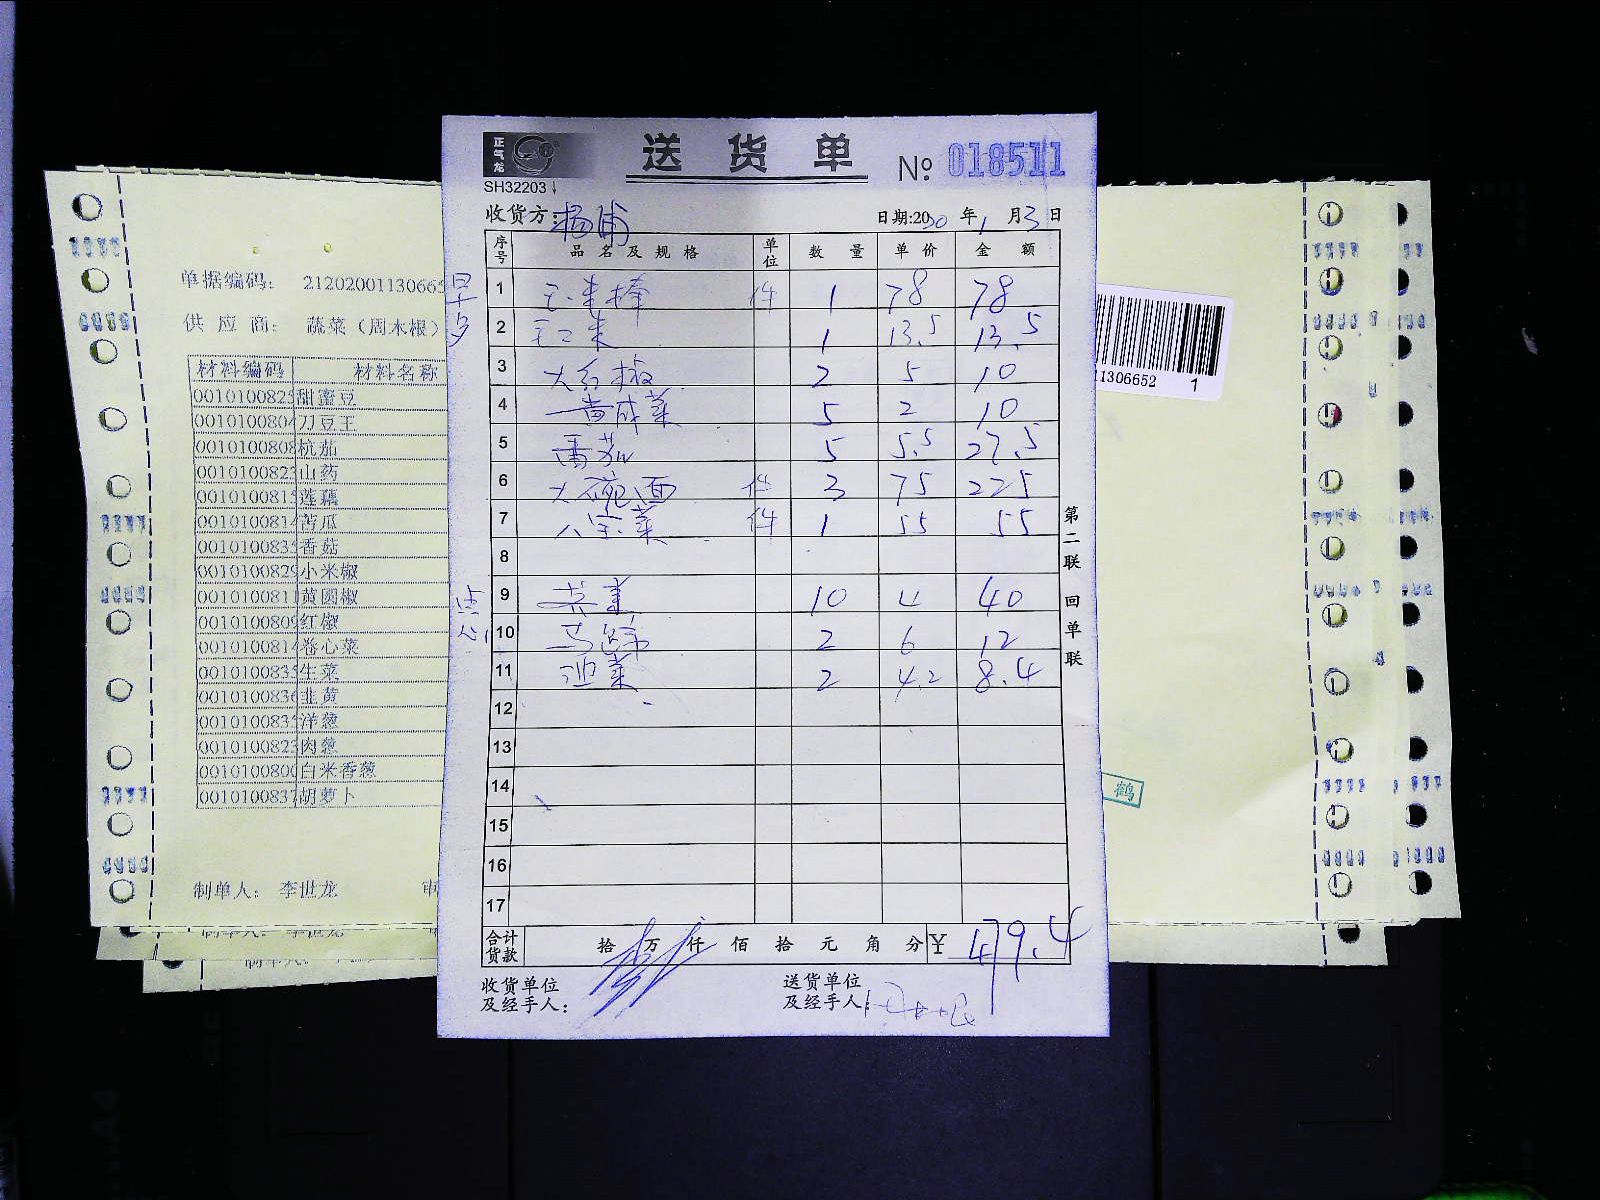 正气龙
送货单
№ 018511
SH32203
收货方: 杨浦
日期:2020年1月3日
序号 品名及规格 单位 数量 单价 金额
早夕
1 玉米棒 件 1 78 78
2 1 13.5 13.5
3 大红椒 2 5 10
4 黄咸菜 5 2 10
5 番茄 5 5.5 27.5
6 大碗面 件 3 75 225
7 八宝菜 件 1 55 55
8
点心
9 10 4 40
10 马蹄 2 6 12
11 2 4.2 8.4
12
13
14
15
16
17
合计货款 拾万仟佰拾元角分 ¥ 479.4
收货单位及经手人:
送货单位及经手人: 周木根
第二联 回单联
单据编码: 21202001130665
供应商: 蔬菜（周木根）
材料编码 材料名称
001010082 甜蜜豆
001010080 刀豆王
001010080 杭茄
001010082 山药
001010081 莲藕
001010081 苦瓜
001010083 香菇
001010082 小米椒
001010081 黄圆椒
001010080 红椒
001010081 卷心菜
001010083 生菜
001010083 韭黄
001010083 洋葱
001010082 肉葱
001010080 白米香葱
001010083 胡萝卜
制单人: 李世龙 审
11306652 1
鹤